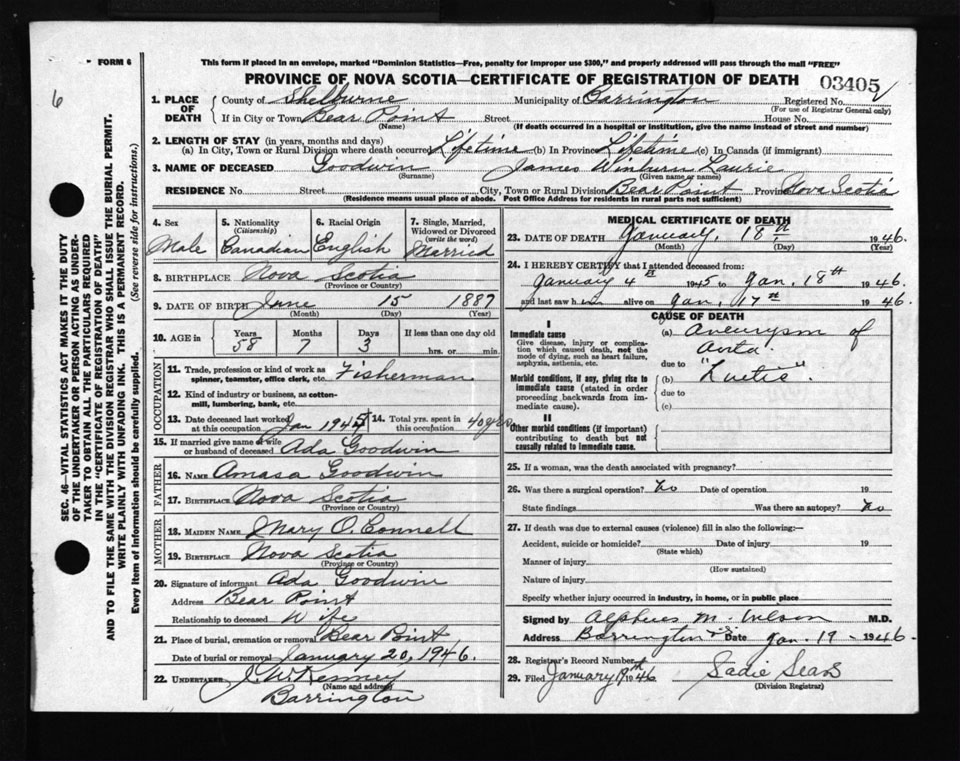 FORM 6
This form if placed in an envelope, marked "Dominion Statistics—Free, penalty for improper use $300," and properly addressed will pass through the mail "FREE"
PROVINCE OF NOVA SCOTIA—CERTIFICATE OF REGISTRATION OF DEATH
03405
6
SEC. 46—VITAL STATISTICS ACT MAKES IT THE DUTY
OF THE UNDERTAKER OR PERSON ACTING AS UNDER-
TAKER TO OBTAIN ALL THE PARTICULARS REQUIRED
IN THE "CERTIFICATE OF REGISTRATION OF DEATH"
AND TO FILE THE SAME WITH THE DIVISION REGISTRAR WHO SHALL ISSUE THE BURIAL PERMIT.
WRITE PLAINLY WITH UNFADING INK. THIS IS A PERMANENT RECORD.
Every item of information should be carefully supplied. (See reverse side for instructions.)
1. PLACE OF DEATH
County of Shelburne Municipality of Barrington Registered No.
(For use of Registrar General only)
If in City or Town Bear Point Street House No.
(Name) (If death occurred in a hospital or institution, give the name instead of street and number)
2. LENGTH OF STAY (in years, months and days)
(a) In City, Town or Rural Division where death occurred Lifetime (b) In Province Lifetime (c) In Canada (if immigrant)
3. NAME OF DECEASED Goodwin James Winburn Laurie
(Surname) (Given name or names)
RESIDENCE No. Street City, Town or Rural Division Bear Point Province Nova Scotia
(Residence means usual place of abode. Post Office Address for residents in rural parts not sufficient)
4. Sex
Male
5. Nationality
(Citizenship)
Canadian
6. Racial Origin
English
7. Single, Married,
Widowed or Divorced
(write the word)
Married
8. BIRTHPLACE Nova Scotia
(Province or Country)
9. DATE OF BIRTH June 15 1887
(Month) (Day) (Year)
10. AGE in Years Months Days If less than one day old
58 7 3 hrs. or min.
OCCUPATION
11. Trade, profession or kind of work as
spinner, teamster, office clerk, etc. Fisherman
12. Kind of industry or business, as cotton-
mill, lumbering, bank, etc.
13. Date deceased last worked
at this occupation Jan 1945
14. Total yrs. spent in
this occupation 40 yrs
15. If married give name of wife
or husband of deceased Ada Goodwin
FATHER
16. NAME Amasa Goodwin
17. BIRTHPLACE Nova Scotia
(Province or Country)
MOTHER
18. MAIDEN NAME Mary O. Connell
19. BIRTHPLACE Nova Scotia
(Province or Country)
20. Signature of informant Ada Goodwin
Address Bear Point
Relationship to deceased Wife
21. Place of burial, cremation or removal Bear Point
Date of burial or removal January 20, 1946.
22. UNDERTAKER J. W. Kenney
(Name and address)
Barrington
MEDICAL CERTIFICATE OF DEATH
23. DATE OF DEATH January, 18th 1946.
(Month) (Day) (Year)
24. I HEREBY CERTIFY that I attended deceased from:
January 4th 1945 to Jan. 18th 1946
and last saw him alive on Jan. 17th 1946.
CAUSE OF DEATH
I
Immediate cause
Give disease, injury or complica-
tion which caused death, not the
mode of dying, such as heart failure,
asphyxia, asthenia, etc.
(a) Aneurysm of
Aorta.
due to
Morbid conditions, if any, giving rise to
immediate cause (stated in order
proceeding backwards from im-
mediate cause).
(b) "Luetic".
due to
(c)
II
Other morbid conditions (if important)
contributing to death but not
causally related to immediate cause.
25. If a woman, was the death associated with pregnancy?
26. Was there a surgical operation? No Date of operation 19
State findings Was there an autopsy? No
27. If death was due to external causes (violence) fill in also the following:—
Accident, suicide or homicide? Date of injury 19
(State which)
Manner of injury
(How sustained)
Nature of injury
Specify whether injury occurred in industry, in home, or in public place
Signed by Alpheus M. Wilson M.D.
Address Barrington N.S. Date Jan. 19 - 1946.
28. Registrar's Record Number
29. Filed January 19th 1946 Sadie Sears
(Division Registrar)